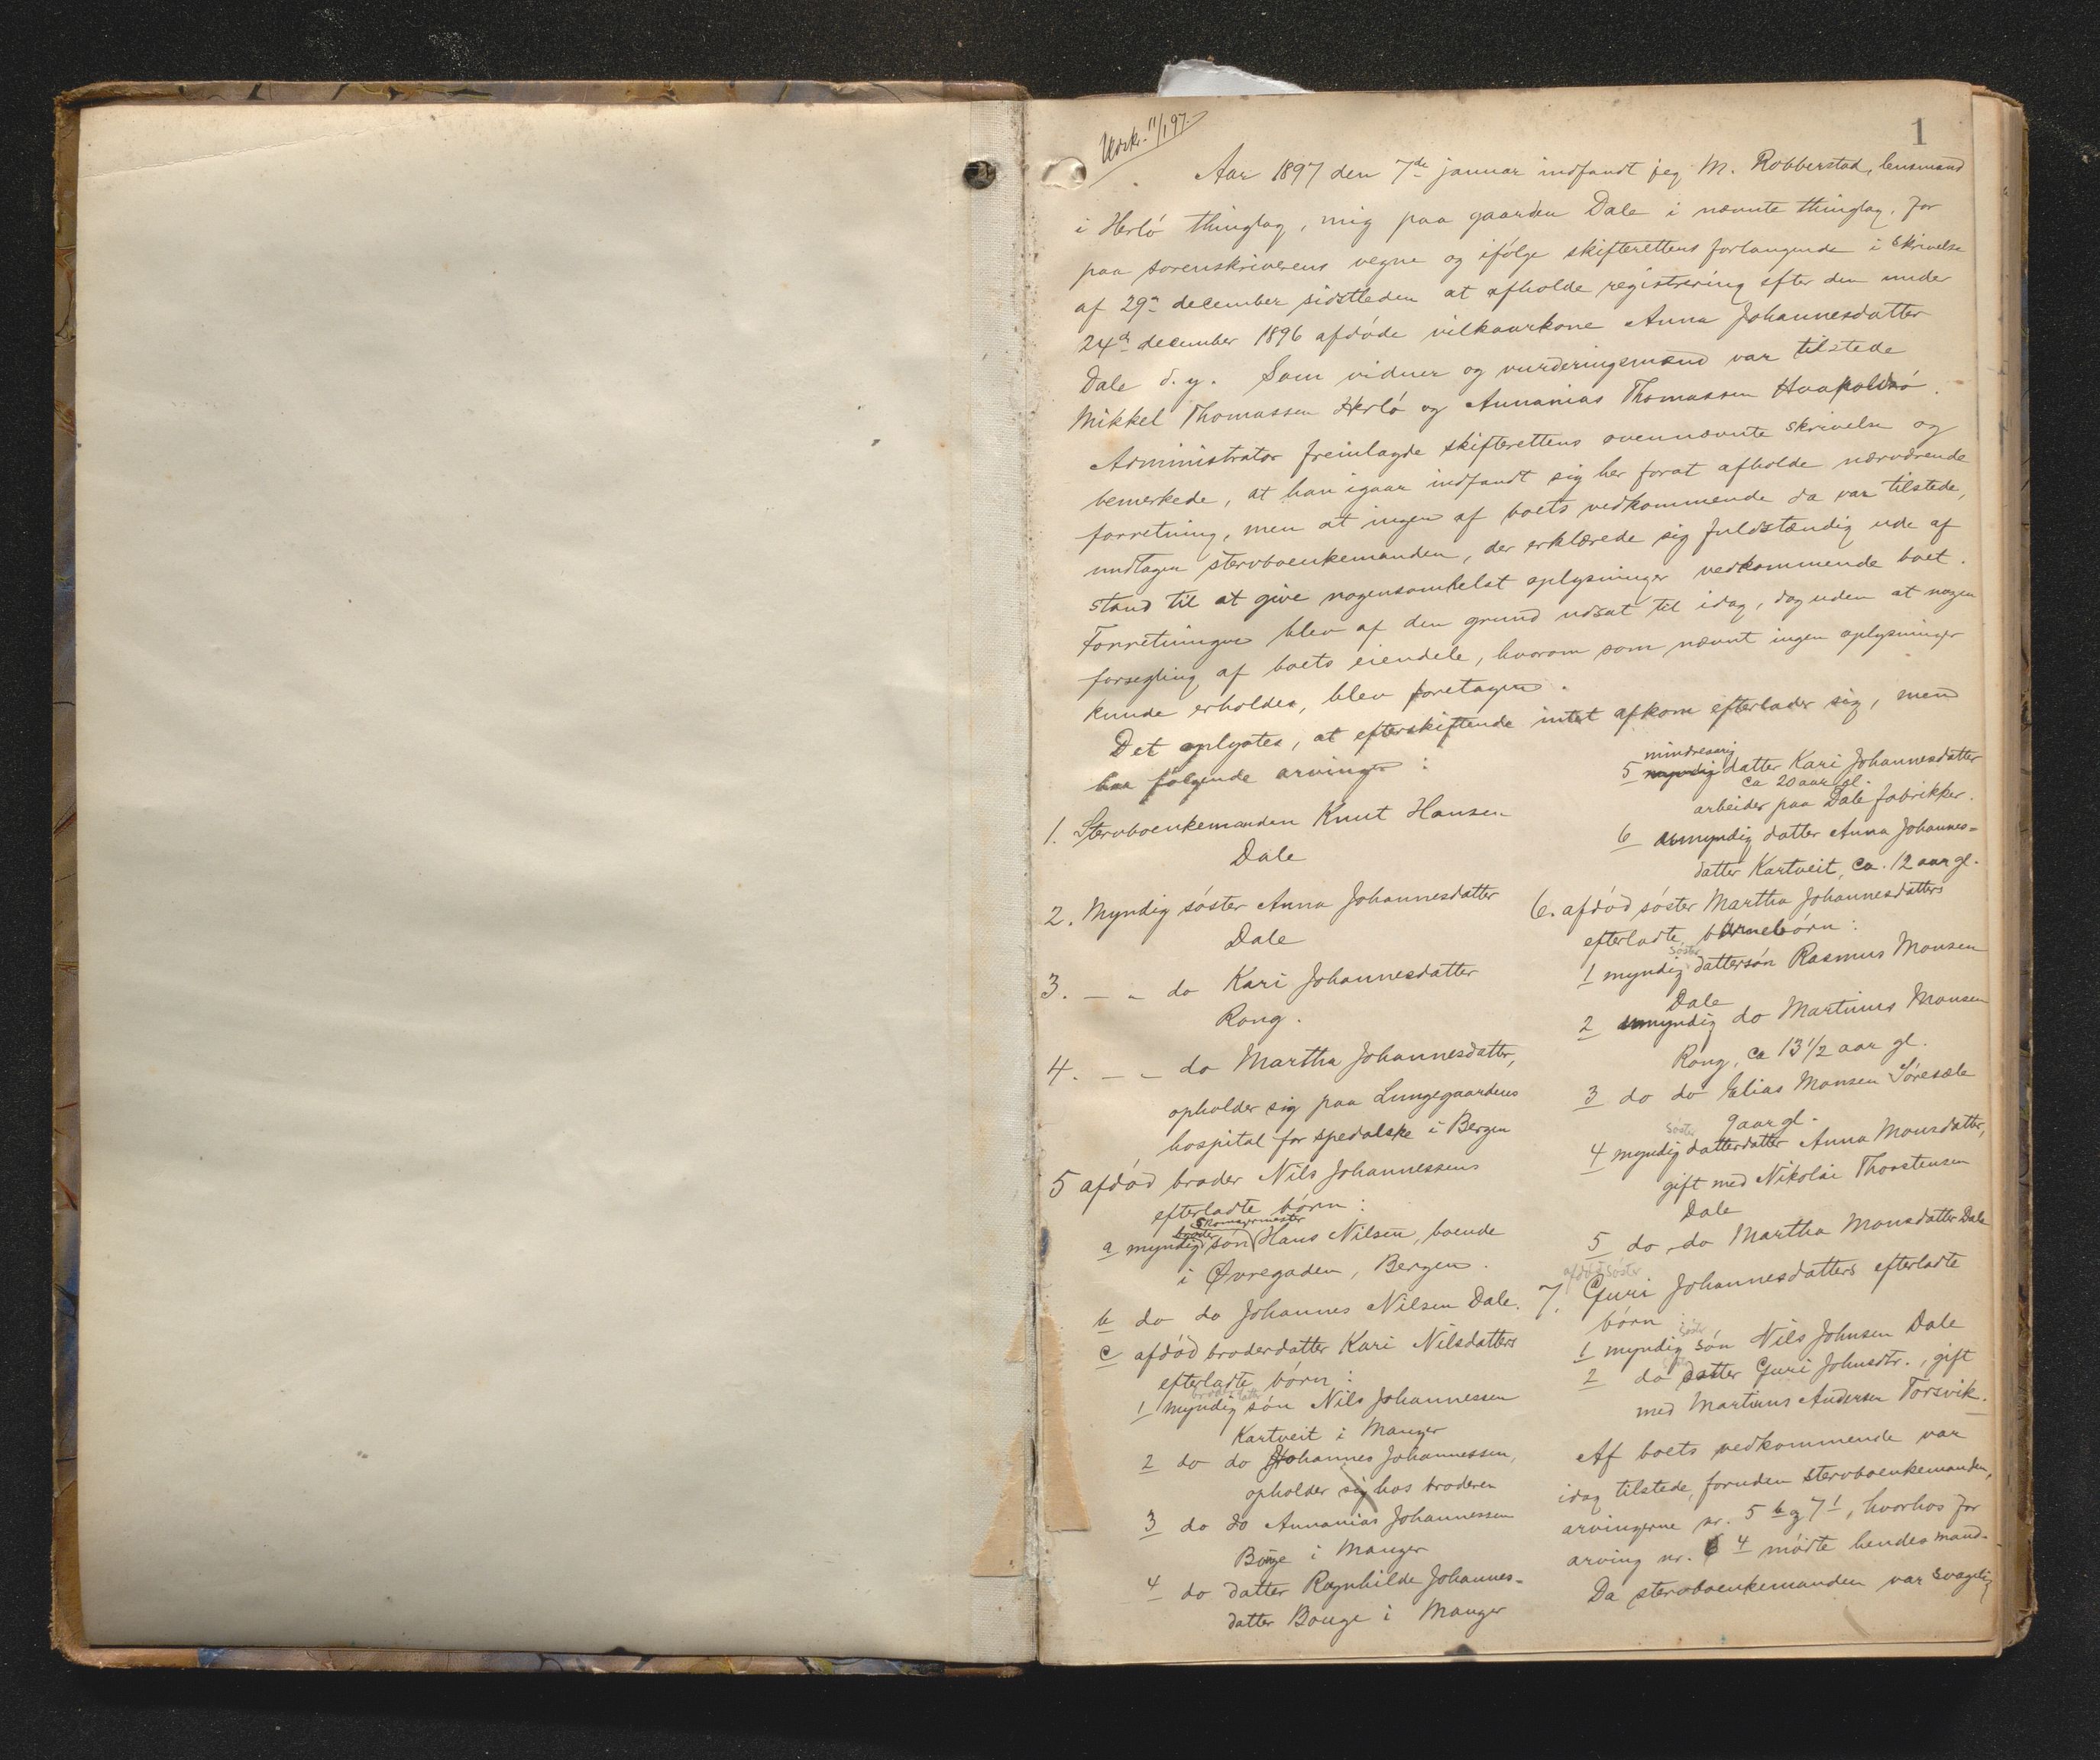 Udskr. 11/1 97.
1
Aar 1897 den 7de januar indfandt jeg M. Robberstad, lensmand
i Herlö thinglag, mig paa gaarden Dale i nævnte thinglag, for
paa sorenskriverens vegne og ifölge skifterettens forlangende i skrivelse
af 29de december sidstleden at afholde registrering efter den under
24de december 1896 afdöde vilkaarkone Anna Johannesdatter
Dale d. y. Som vidner og vurderingsmænd var tilstede
Mikkel Thomassen Herlö og Annanias Thomassen
Administrator fremlagde skifterettens ovennævnte skrivelse og
bemerkede, at han igaar indfandt sig her forat afholde nærværende
forretning, men at ingen af boets vedkommende da var tilstede,
undtagen stervboenkemanden, der erklærede sig fuldstændig ude af
stand til at give nogensomhelst oplysninger vedkommende boet.
Forretningen blev af den grund udsat til idag, dog uden at nogen
forsegling af boets eiendele, hvorom som nævnt ingen oplysninger
kunde erholdes, blev foretagen.
Det oplystes, at efterskiftende intet afkom efterlader sig, men
har fölgende arvinger:
1. Stervboenkemanden Knut Hansen
Dale
2. Myndig söster Anna Johannesdatter
Dale
3. – „ do Kari Johannesdatter
Rong.
4. – – do Martha Johannesdatter,
opholder sig paa Lungegaardens
hospital for spedalske i Bergen
5 afdöd broder Nils Johannessens
efterladte börn:
skomagermester
broder
a myndig sön Hans Nilsen, boende
i Øvregaden, Bergen.
b do do Johannes Nilsen Dale.
c afdöd broderdatter Kari Nilsdatters
efterladte börn:
broderdatter
1 myndig sön Nils Johannessen
Kartveit i Manger
2 do do Johannes Johannessen,
opholder sig hos broderen
3 do do Annanias Johannessen
Böuge i Manger
4 do datter Ragnhilde Johannes=
datter Bouge i Manger
mindreaarig
5 myndig datter Kari Johannesdatter
ca 20 aar gl.
arbeider paa Dale fabrikker.
6 umyndig datter Anna Johannes=
datter Kartveit, ca. 12 aar gl.
6. afdöd söster Martha Johannesdatters
efterladte börnebörn:
söster
1 myndig dattersön Rasmus Monsen
Dale
2 umyndig do Martinus Monsen
Rong, ca 13 1/2 aar gl.
3 do do Elias Monsen Söresæle
9 aar gl.
söster
4 myndig datterdatter Anna Monsdatter,
gift med Nikolai Thorstensen
Dale
5 do do Martha Monsdatter Dale
afdöd söster
7. Guri Johannesdatters efterladte
börn
söster
1 myndig sön Nils Johnsen Dale
söster
2 do datter Guri Johnsdtr., gift
med Martinus Andersen Torsvik.
Af boets vedkommende var
idag tilstede, foruden stervboenkemanden,
arvingerne nr. 5 b og 7 1, hvorhos for
arving nr. 6 4 mödte hendes mand.
Da stervboenkemanden var svagelig